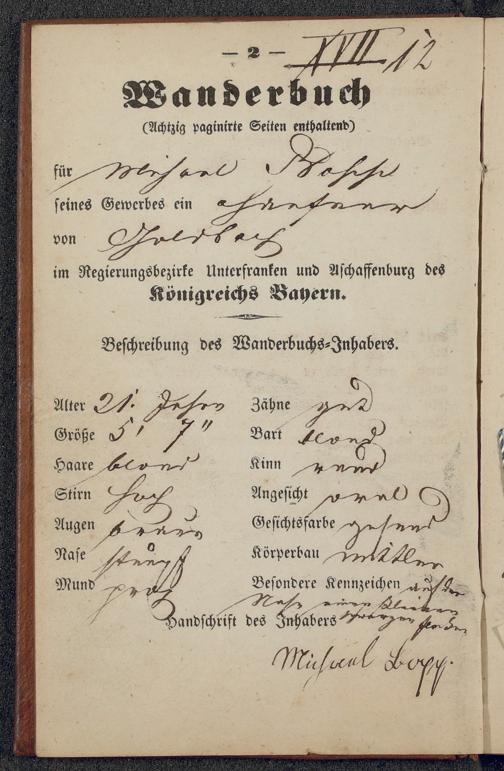 — 2 —
XVII 12
Wanderbuch
(Achtzig paginirte Seiten enthaltend)
für Michael Bopp
seines Gewerbes ein
von Goldbach
im Regierungsbezirke Unterfranken und Aschaffenburg des
Königreichs Bayern.
Beschreibung des Wanderbuchs-Inhabers.
Alter 21. Jahre
Größe 5' 7"
Haare blond
Stirn hoch
Augen braun
Nase stumpf
Mund prop
Zähne gut
Bart blond
Kinn rund
Angesicht oval
Gesichtsfarbe gesund
Körperbau mittler
Besondere Kennzeichen auf der
Nase einen kleinen
schwarzen Flecken
Handschrift des Inhabers
Michael Bopp.